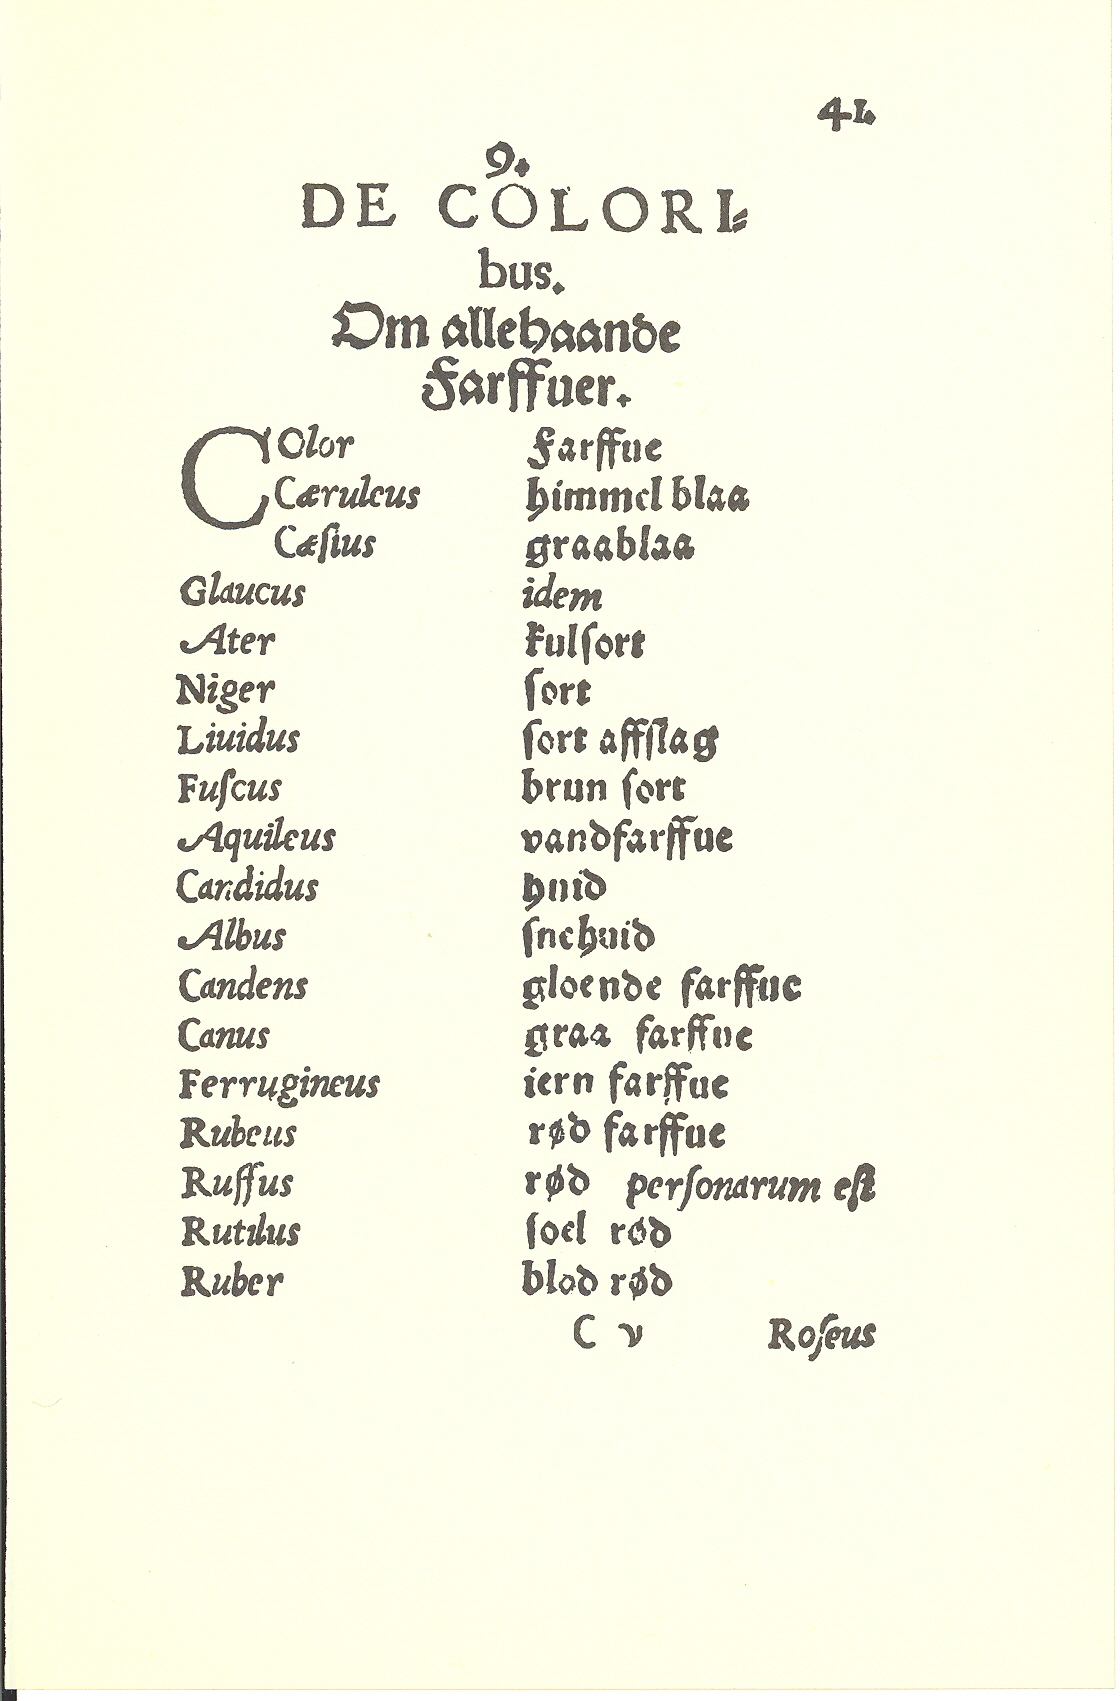 41.
9.
DE COLORI⸗
bus.
Om allehaande
Farffuer.
COlor Farffue
Cæruleus himmel blaa
Cæſius graablaa
Glaucus idem
Ater kulſort
Niger ſort
Liuidus ſort affſlag
Fuſcus brun ſort
Aquileus vandfarffue
Candidus huid
Albus ſnehuid
Candens gloende farffue
Canus graa farffue
Ferrugineus iern farffue
Rubeus rød farffue
Ruffus rød perſonarum eſt
Rutilus ſoel rød
Ruber blod rød
C v Roſeus